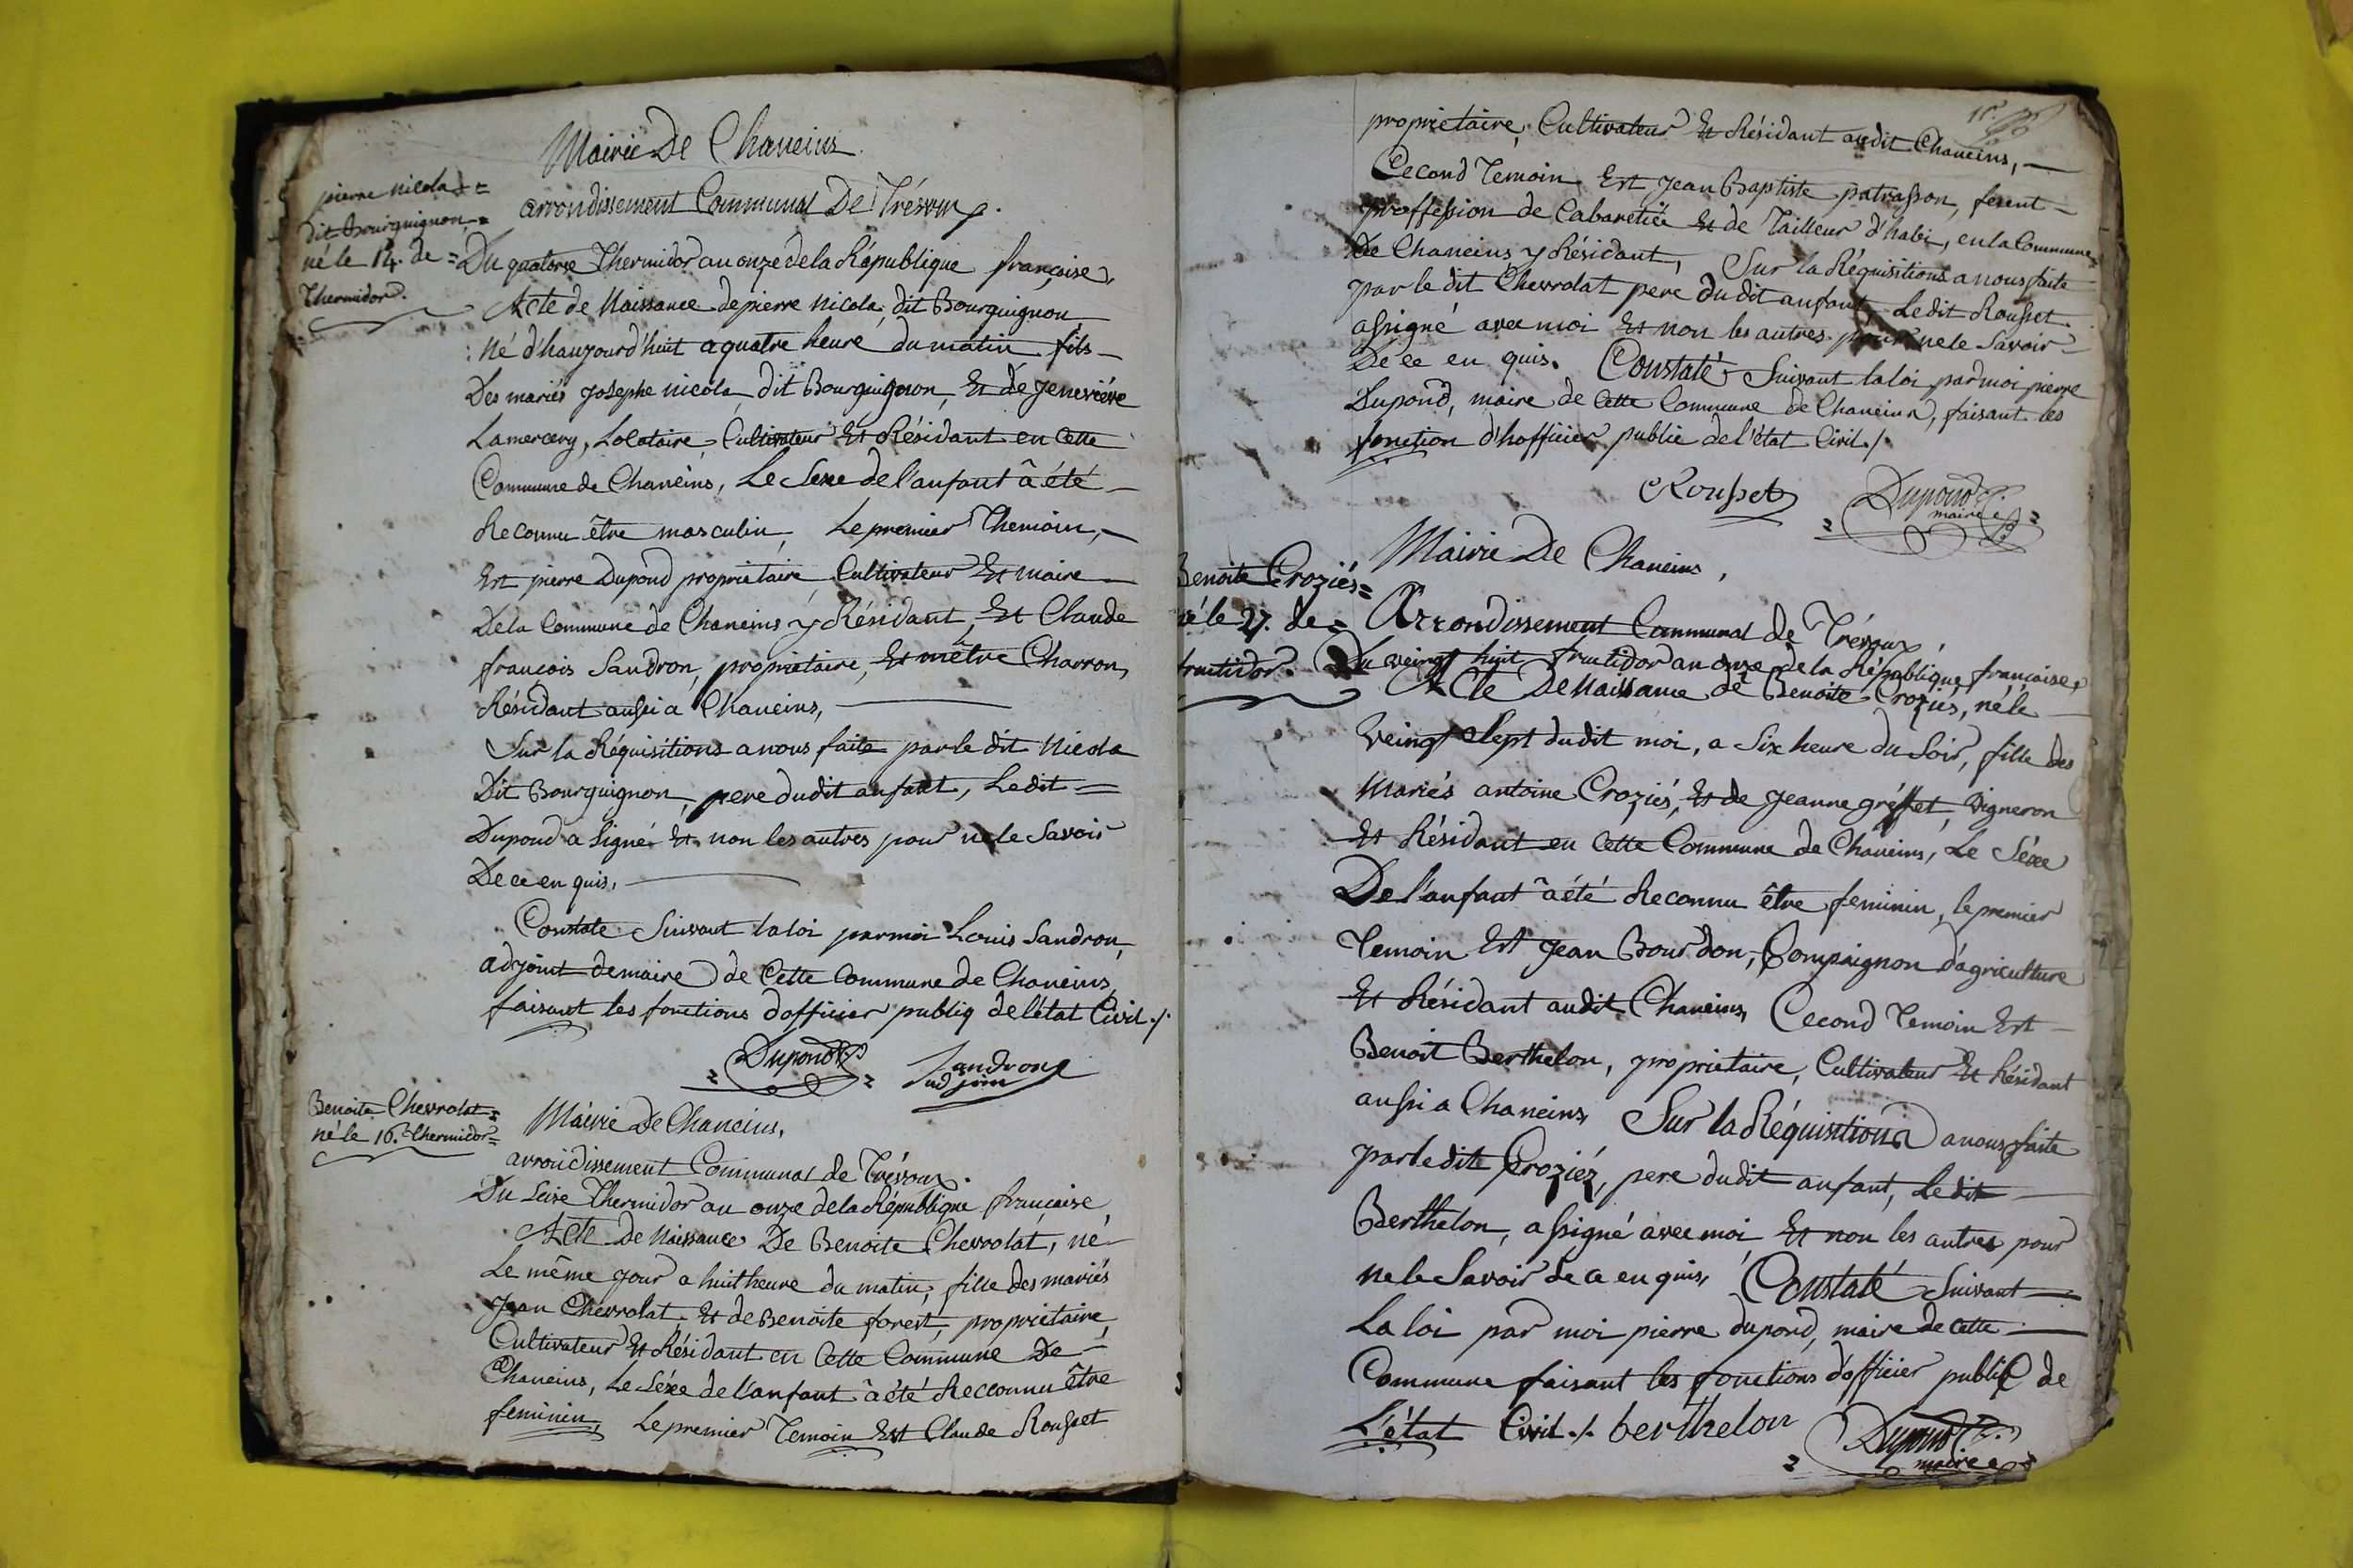 Mairie De Chaneins
pierre nicola =
dit Bourguignon, =
né le 14. de =
Thermidor.
arrondissement Communal De Trévoux.
Du quatorze Thermidor an onze de la République française,
Acte de Naissance de pierre nicola dit Bourguignon
né d'haujourd'huit a quatre heure du matin fils
Des mariés Josephe nicola dit Bourguignon, Et de Jeneviéve
Lamercery, Locataire, Cultivateur Et Résidant en Cette
Commune de Chaneins, Le Sexe de l'anfant â été
Reconnu être masculin, Le premier Themoin,
Est pierre Dupond propriétaire, Cultivateur Et maire
De la Commune de Chaneins y Résidant, Et Claude
françois Sandron, propriétaire, Et mêtre Charron,
Résidant aussi a Chaneins,
Sur la Réquisitions a nous faite par le dit Nicola
Dit Bourguignon, pere dudit anfant, Le dit =
Dupond a Signé Et non les autres pour ne le Savoir
De ce en quis,
Constaté Suivant la loi par moi Louis Sandron,
adjoint de maire de Cette Commune de Chaneins,
faisant les fonctions d'officier publiq de l'état Civil ./.
Dupond Sandron
adjoint
Benoite Chevrolat =
né le 16. Thermidor =
Mairie De Chaneins,
arrondissement Communal de Trévoux.
Du Seize Thermidor an onze de la République française
Acte De Naissance De Benoite Chevrolat, né
Le même jour a huit heure du matin, fille des mariés
Jean Chevrolat, Et de Benoite forest, propriétaire,
Cultivateur Et Résidant en Cette Commune De
Chaneins, Le Séxe de l'anfant â été Recconnu être
feminin, Le premier Temoin Est Claude Rousset
propriétaire, Cultivateur Et Résidant audit Chaneins,
Cecond Temoin Est Jean Baptiste patrasson, fesent
proffession de Cabaretié Et de Tailleur d'habi, en la Commune
De Chaneins y Résidant, Sur la Réquisitions a nous faite
par le dit Chevrolat pere dudit anfant, Le dit Rousset
assigné avec moi Et non les autres pour ne le Savoir
De ce en quis. Constaté Suivant la loi par moi pierre
Dupond, maire de Cette Commune de Chaneins, faisant les
fonction d'hofficier public de l'état Civil ./.
Rousset Dupond
maire
Mairie De Chaneins,
Benoite Croziés =
né le 27. de =
fructidor.
Arrondissement Communal de Trévoux,
Du veingt huit fructidor an onze de la République française,
Acte De Naissance de Benoite Croziés, né le
Veingt Sept dudit moi, a Six heure du Soir, fille des
Mariés antoine Croziés, Et de Jeanne gréffet, Vigneron
Et Résidant en Cette Commune de Chaneins, Le Séxe
De l'anfant â été Reconnu être feminin, le premier
Temoin Est Jean Bourdon, Compaignon d'agriculture
Et Résidant audit Chaneins, Cecond Temoin Est
Benoit Berthelon, propriétaire, Cultivateur Et Résidant
aussi a Chaneins, Sur la Réquisitions a nous faite
par le dite Croziéz, pere dudit anfant, Le dit
Berthelon, assigné avec moi Et non les autres pour
ne le Savoir de ce en quis, Constaté Suivant
La loi par moi pierre dupond, maire de Cette
Commune faisant les fonctions d'officier public de
L'état Civil ./. berthelon Dupond
maire